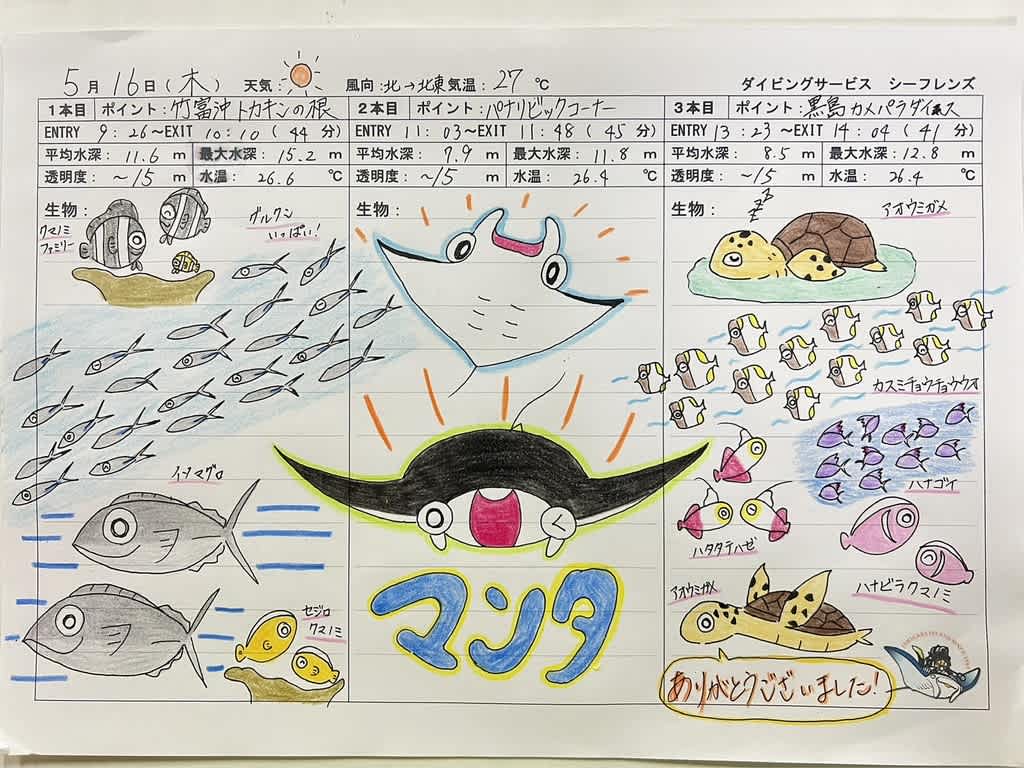 5月16日(木) 天気: 風向:北→北東 気温:27℃ ダイビングサービス シーフレンズ
1本目 ポイント:竹富沖トカキンの根
ENTRY 9:26~EXIT 10:10(44分)
平均水深:11.6m 最大水深:15.2m
透明度:~15m 水温:26.6℃
生物:
クマノミ
ファミリー
グルクン
いっぱい!
イソマグロ
セジロ
クマノミ
2本目 ポイント:パナリビックコーナー
ENTRY 11:03~EXIT 11:48(45分)
平均水深:7.9m 最大水深:11.8m
透明度:~15m 水温:26.4℃
生物:
マンタ
3本目 ポイント:黒島カメパラダイス
ENTRY 13:23~EXIT 14:04(41分)
平均水深:8.5m 最大水深:12.8m
透明度:~15m 水温:26.4℃
生物:
zzz
アオウミガメ
カスミチョウチョウウオ
ハナゴイ
ハタタテハゼ
ハナビラクマノミ
アオウミガメ
ありがとうございました!